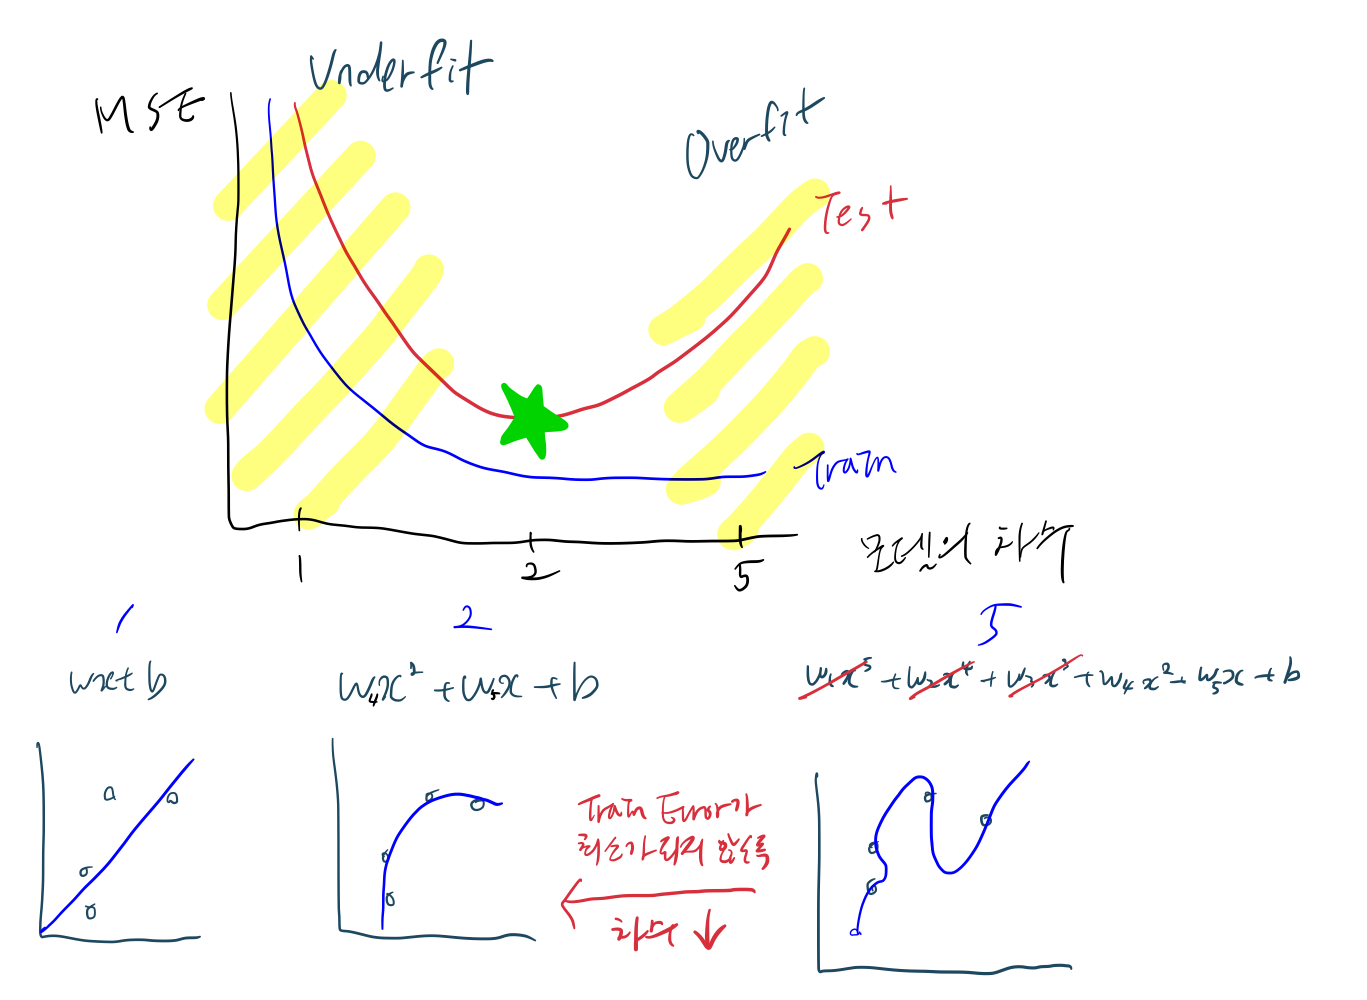 Underfit
MSE
Overfit
Test
Train
모델의 차수
1 2 5
1 2 5
wx+b
w₄x²+w₅x+b
w₁x⁵+w₂x⁴+w₃x³+w₄x²+w₅x+b
Train Error가
최소가 되지 않도록
차수 ↓